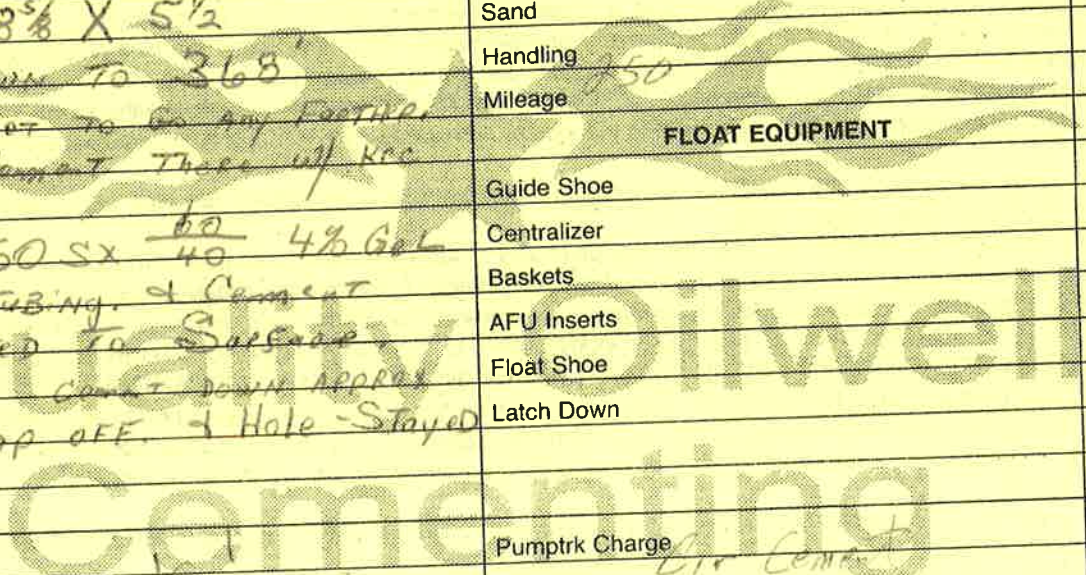 8 5/8 X 5 1/2
TO 368'
to Go Any Farther.
Cement There w/ KCC
50 SX 60/40 4% Gel
Tubing. & Cement
ed To Surface.
Cement DOWN APPROX
op OFF. & Hole - Stayed
Sand
Handling 250
Mileage
FLOAT EQUIPMENT
Guide Shoe
Centralizer
Baskets
AFU Inserts
Float Shoe
Latch Down
Pumptrk Charge Cir Cement
uality Oilwell
Cementing